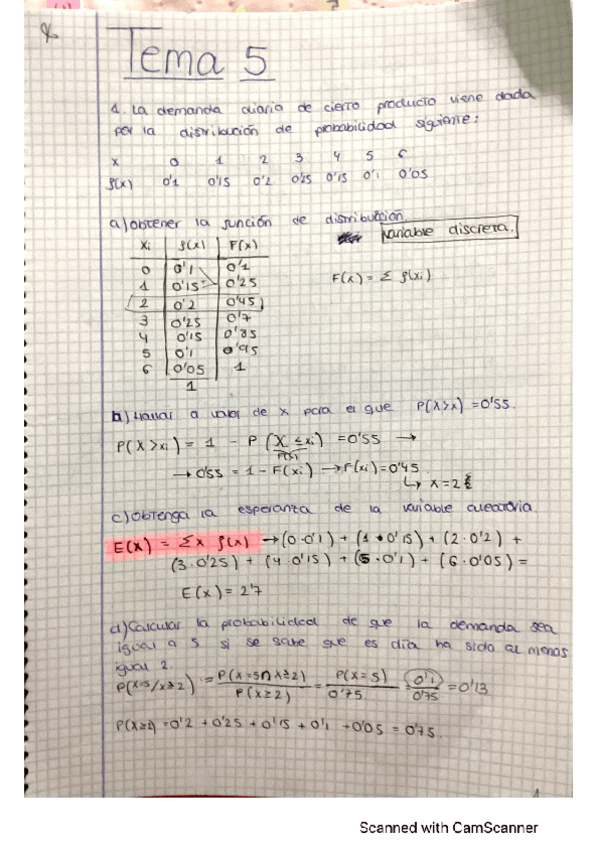 Tema 5
1. La demanda diaria de cierto producto viene dada
por la distribución de probabilidad siguiente:
x 0 1 2 3 4 5 6
f(x) 0'1 0'15 0'2 0'25 0'15 0'1 0'05
a) obtener la función de distribución.
variable discreta.
xi f(x) F(x)
F(x) = Σ f(xi)
0 0'1 0'1
1 0'15 0'25
2 0'2 0'45
3 0'25 0'7
4 0'15 0'85
5 0'1 0'95
6 0'05 1
1
b) Hallar el valor de x para el que P(X>x) = 0'55.
P(X>xi) = 1 - P(X ≤ xi) = 0'55 →
F(x)
→ 0'55 = 1 - F(xi) → F(xi) = 0'45
↳ x = 2
c) Obtenga la esperanza de la variable aleatoria.
E(x) = Σx f(x) → (0·0'1) + (1·0'15) + (2·0'2) +
(3·0'25) + (4·0'15) + (5·0'1) + (6·0'05) =
E(x) = 2'7
d) Calcular la probabilidad de que la demanda sea
igual a 5 si se sabe que es día ha sido al menos
igual 2.
P(x=5/x≥2) = P(x=5∩x≥2) / P(x≥2) = P(x=5) / 0'75 = 0'1 / 0'75 = 0'13
P(x≥2) = 0'2 + 0'25 + 0'15 + 0'1 + 0'05 = 0'75.
1
Scanned with CamScanner